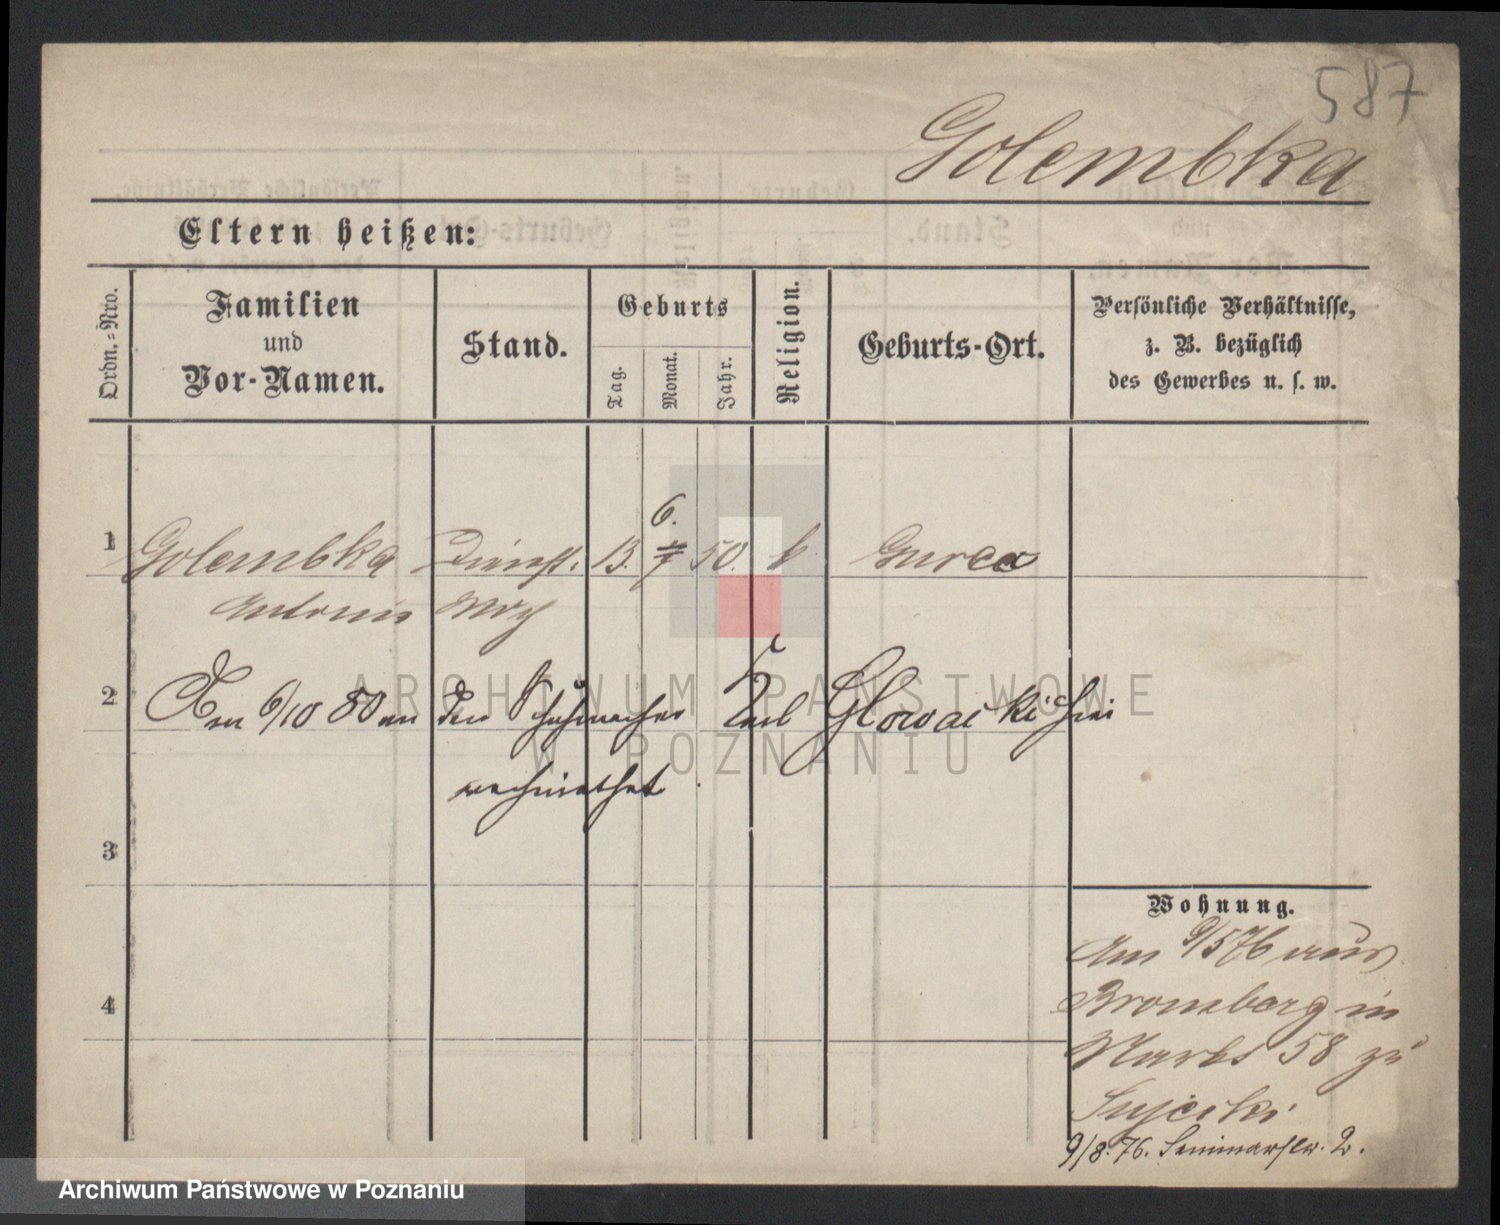 587
Golembka
Eltern heißen:
Ordn.-Nro.
Familien
und
Vor-Namen.
Stand.
Geburts
Tag.
Monat.
Jahr.
Religion.
Geburts-Ort.
Persönliche Verhältnisse,
z. B. bezüglich
des Gewerbes u. s. w.
6.
1 Golembka Dienst. 13. 7 50. k
Antonie
2 Am 6/10 80 an den Schuhmacher Karl Glowacki hier
verheirathet
3
Wohnung.
Am 9/5 76 aus
Bromberg in
Markt 58 zu
4
9/8. 76. Seminarstr. 2.
ARCHIWUM PAŃSTWOWE
W POZNANIU
Archiwum Państwowe w Poznaniu